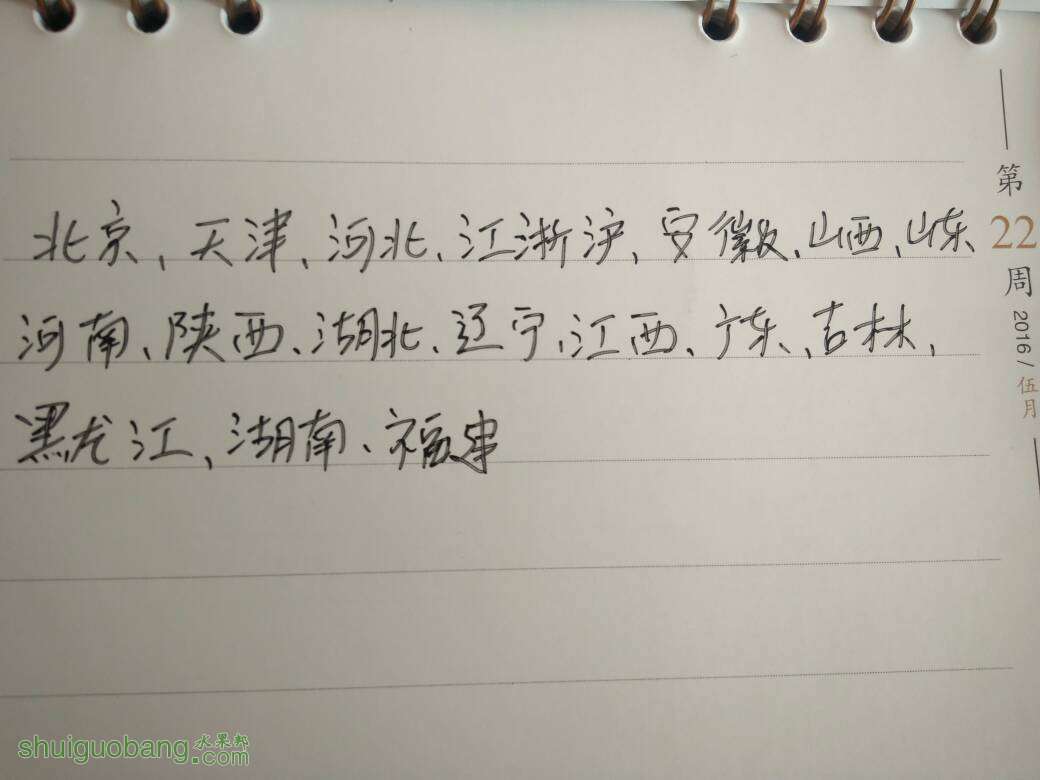 北京、天津、河北、江浙沪、安徽、山西、山东、
河南、陕西、湖北、辽宁、江西、广东、吉林、
黑龙江、湖南、福建
第
22
周
2016/
伍月
水果邦
shuiguobang.com